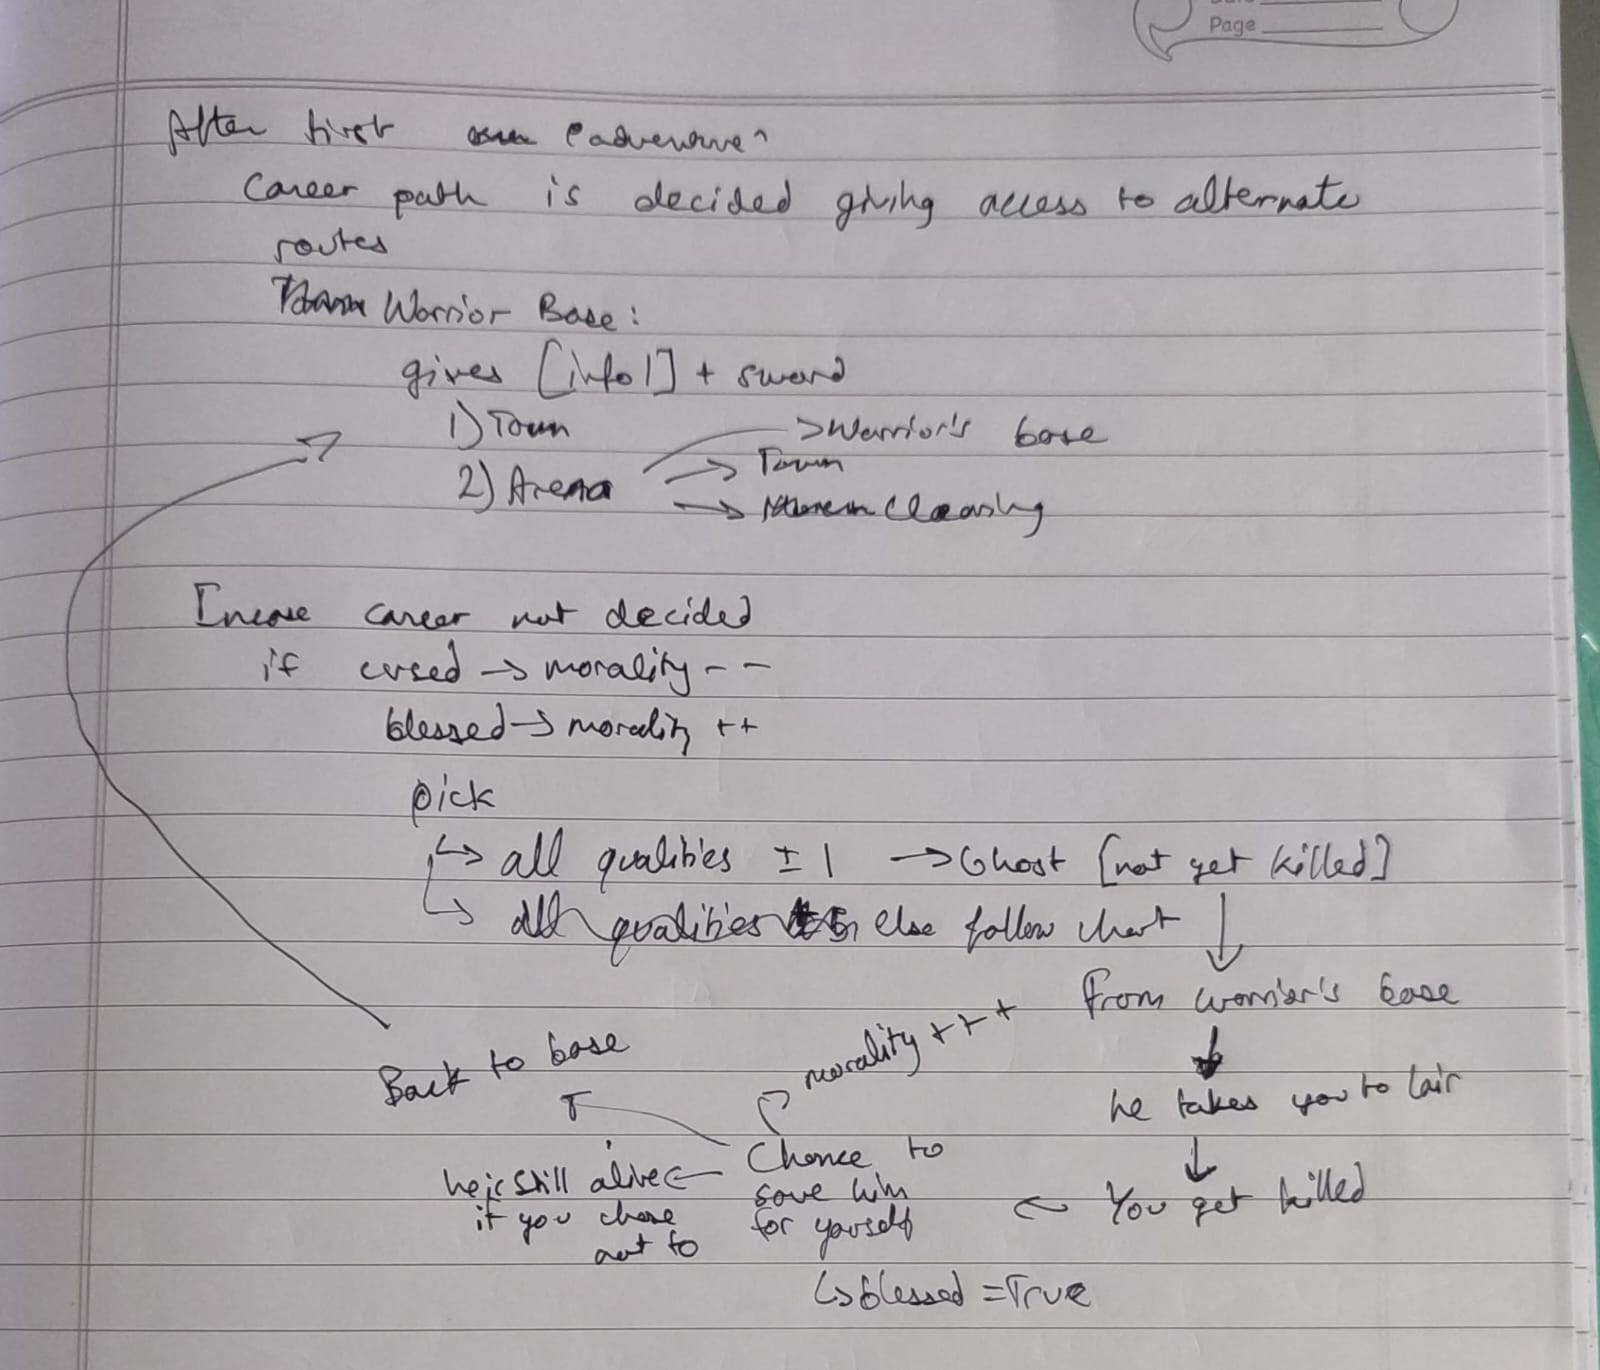 Page
After first
Career path is decided giving access to alternate
routes
Warrior Base:
gives [info1] + sword
1) Town
2) Arena
→ Warrior's base
→ Town
→ Clearing
Incase career not decided
if cursed → morality - -
blessed → morality ++
pick
↳ all qualities ± 1 → Ghost [not yet killed]
↳ all qualities else follow chart
From warrior's base
he takes you to lair
You get killed
morality +++
Back to base
Chance to
save him
for yourself
he is still alive
if you chose
not to
↳ blessed = True